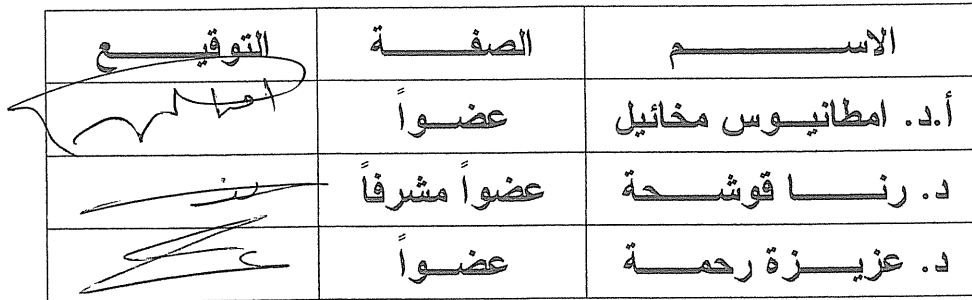 الاسم الصفة التوقيع
أ.د. امطانيوس مخائيل عضواً
د. رنا قوشحة عضواً مشرفاً
د. عزيزة رحمة عضواً